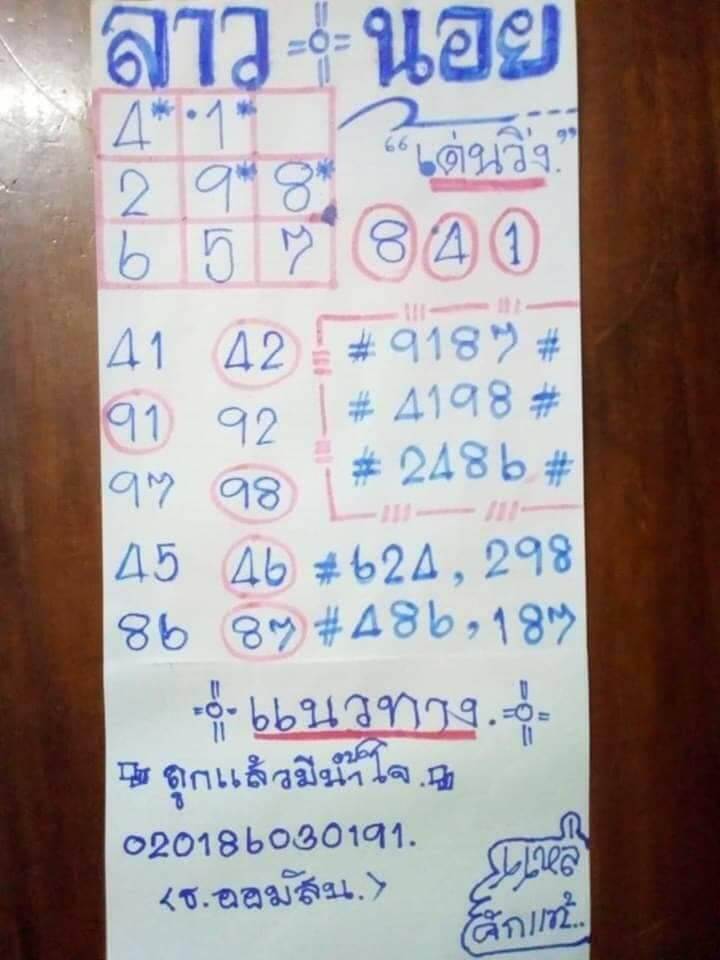 ลาว นอย
4* 1*
"เด่นวิ่ง."
2 9* 8*
6 5 7
8 4 1
41 42
# 9187 #
91 92
# 4198 #
97 98
# 2486 #
45 46
# 624, 298
86 87
# 486, 187
แนวทาง.
ถูกแล้วมีน้ำใจ.
020186030191.
<ธ.ออมสิน.>